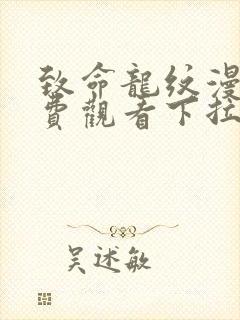 致命龍紋漫
費觀看下拉
吳述敏